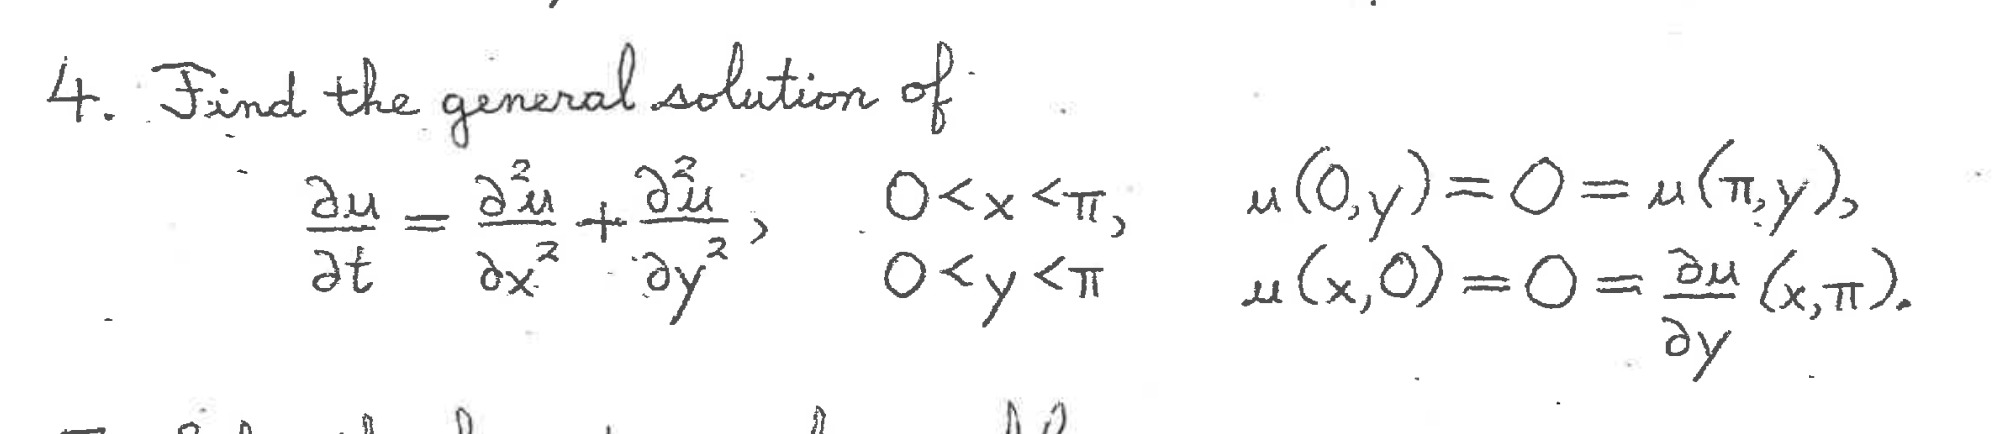 4. Find the general solution of
∂u/∂t = ∂²u/∂x² + ∂²u/∂y², 0<x<π, u(0,y)=0=u(π,y),
0<y<π u(x,0)=0=∂u/∂y (x,π).